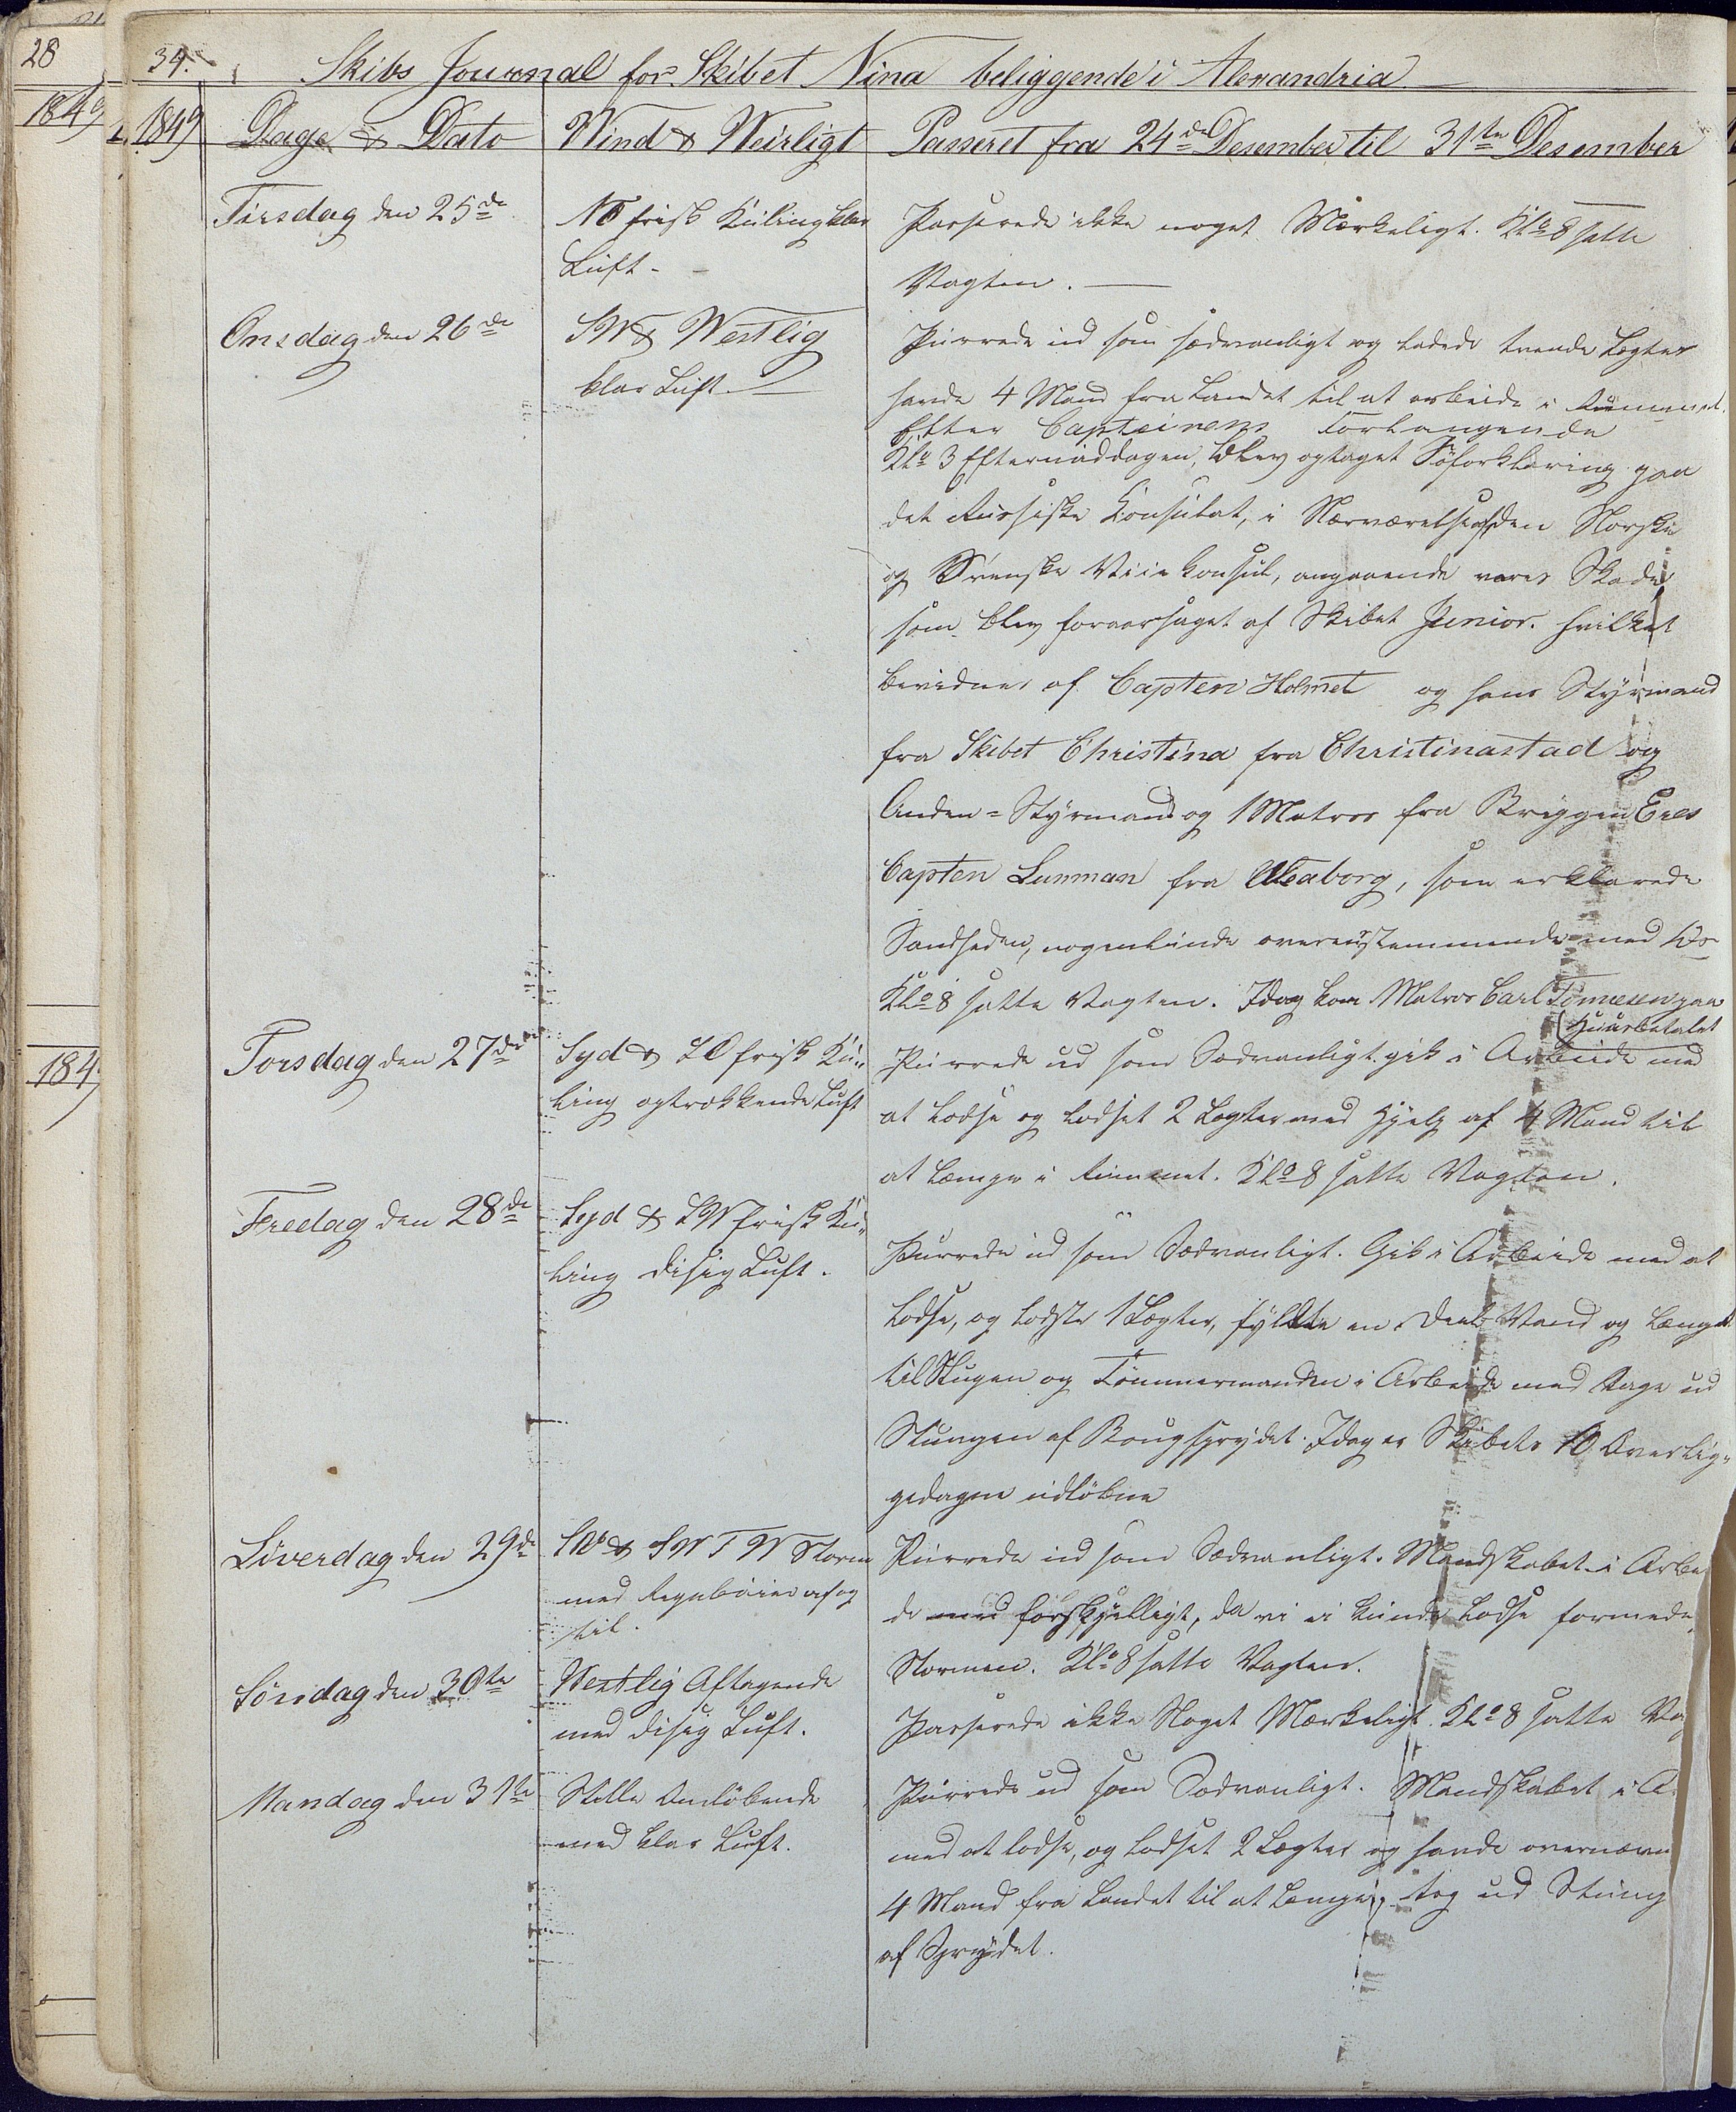 28
1849
184
34.
Skibs Journal for Skibet Nina beliggende i Alexandria
1849 Dage & Dato Wind & Weirligt Passeret fra 24de Desember til 31te Desember
Tirsdag den 25de
NO frisk Küling klar
Luft.
Passerede ikke noget Mærkeligt. Klo 8 satte
Vagten.
Onsdag den 26de
SW & Westlig
klar Luft
Purrede ud som sædvanligt og lodsede tvende Lægter
havde 4 Mand fra Landet til at arbeide i Rummet.
Efter Capteinens Forlangende
Klo 3 Eftermiddagen, blev optaget Søforklaring paa
det Russiske Konsulat, i Nærværelse af den Norske
og Svenske Viicekonsul, angaaende vores Skade,
som blev foraarsaget af Skibet Junior. hvilket
bevidnes af Capten Holmet og hans Styrmand
fra Skibet Christina fra Christinastad og
Anden=Styrmand og 1 Matros fra Briggen Eres
Capten Lunman fra Uleaborg, som erklærede
Sandheden, nogenlunde overensstemmende med Os
Klo 8 satte Vagten. Idag kom Matros Carl Tønnesen paa
Torsdag den 27de
Syd & SO frisk Kü-
ling optrækkende Luft
Purrede ud som Sædvanligt. gik i Arbeide med
at lodse og lodset 2 Lægter med Hjelp af 4 Mand til
at Lempe i Rummet. Klo 8 satte Vagten.
Fredag den 28de
Syd & SW frisk Kü-
ling disig Luft.
Purrede ud som Sædvanligt. Gik i Arbeide med at
lodse, og lodste 1 Lægter, fyldte en Deel Vand og Lempet
til Stugen og Tømmermanden i Arbeide med tage ud
Stungen af Bougsprydet. Idag er Skibets 10 Overlig-
gedagene udløbne
Löverdag den 29de
SW & SWTW Storm
med Regnbøier af og
til.
Purrede ud som Sædvanligt. Mandskabet i Arbe
de med forskjelligt, da vi ei kunde lodse formede
Stormen. Klo 8 satte Vagten.
Söndag den 30te
Westlig Aftagende
med disig Luft.
Passerede ikke Noget Mærkeligt. Klo 8 satte Va
Mandag den 31te
Stille Omløbende
med klar Luft.
Purrede ud som Sædvanligt. Mandskabet i A
med at lodse, og lodset 2 Lægter og havde overnævn
4 Mand fra Landet til at Lempe, tog ud Stung
af Sprydet.